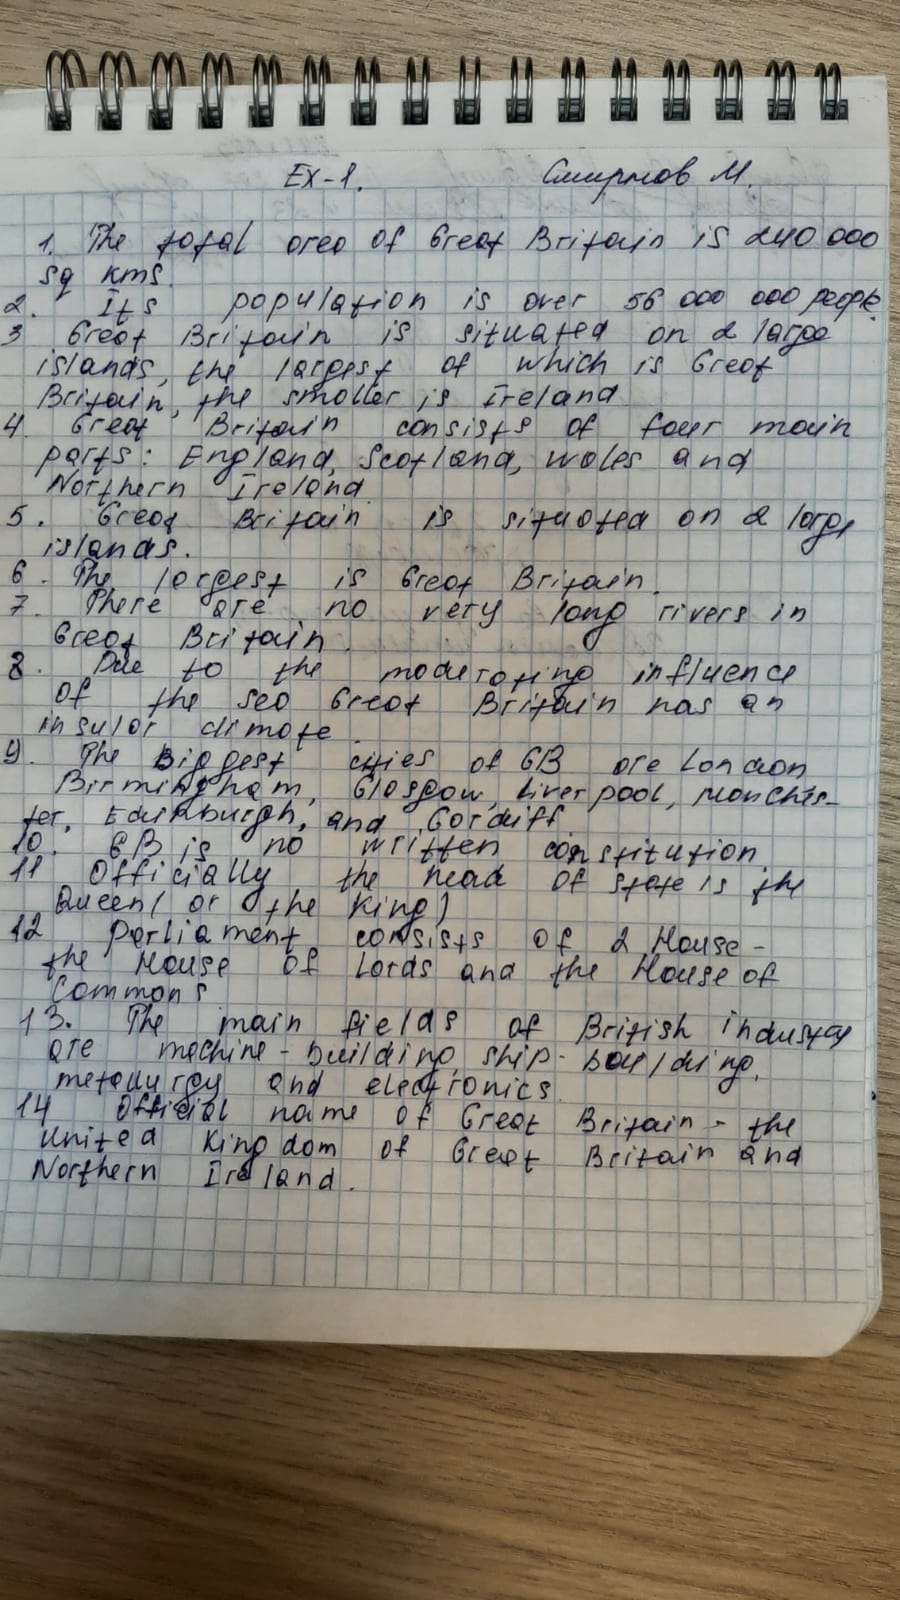 Ex-1. Смирнов М.
1. The total area of Great Britain is 240 000
sq kms.
2. Its population is over 56 000 000 people.
3 Great Britain is situated on 2 large
islands, the largest of which is Great
Britain, the smaller is Ireland
4. Great Britain consists of four main
parts: England, Scotland, Wales and
Northern Ireland.
5. Great Britain is situated on 2 large
islands.
6. The largest is Great Britain.
7. There are no very long rivers in
Great Britain.
8. Due to the moderating influence
of the sea Great Britain has an
insular climate.
9. The Biggest cities of GB are London
Birmingham, Glasgow, Liverpool, Manches-
ter, Edinburgh, and Cardiff
10. GB is no written constitution
11 Officially the head of state is the
Queen (or the King)
12 Parliament consists of 2 House -
the House of Lords and the House of
Commons
13. The main fields of British industry
are machine-building, ship-bouilding,
metallurgy and electronics.
14 Official name of Great Britain - the
United Kingdom of Great Britain and
Northern Ireland.